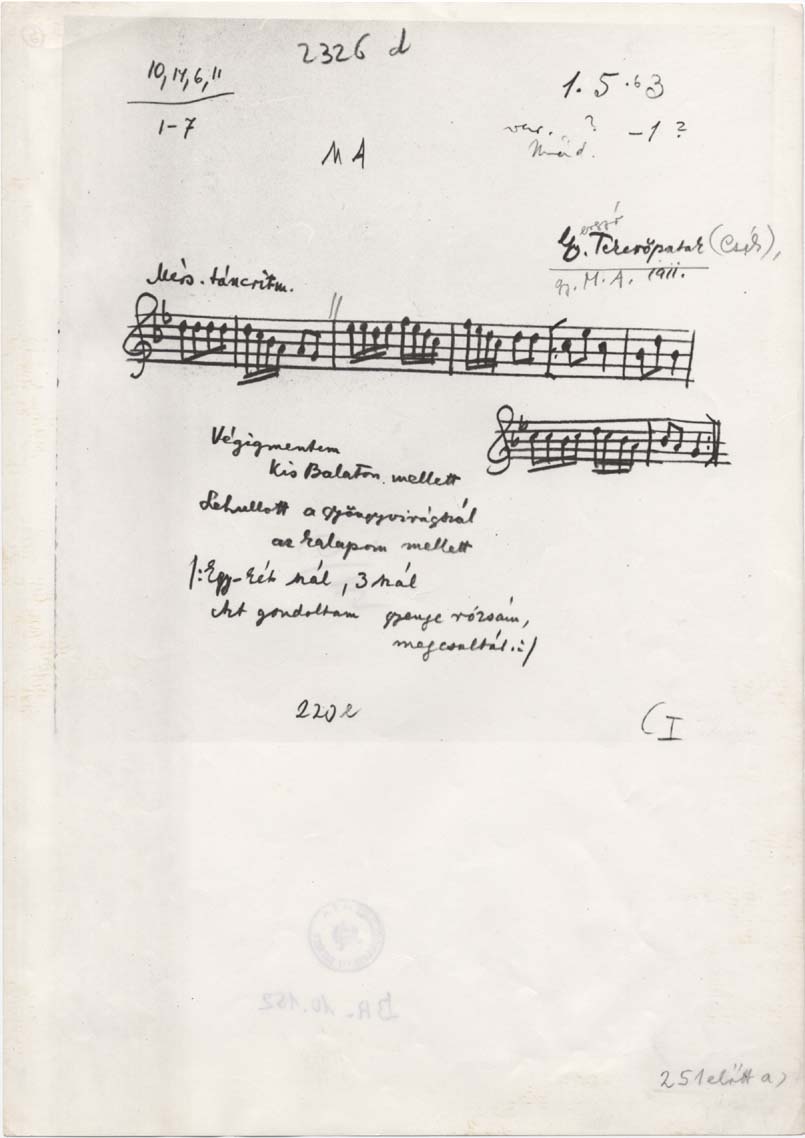 2326 d
10, 14, 6, 11
1-7
1. 5. b3
var. ? -1 ?
M A
Gy. Tekerőpatak (Csík),
gy. M. A. 1911.
Mérs. táncritm.
Végigmentem
Kis Balaton mellett
Lehullott a gyöngyvirágszál
az kalapom mellett
/: Egy-két szál, 3 szál
Azt gondoltam gyenge rózsám,
megcsaltál. :/
220 e
(I
BR. 10.152
251 előtt a)